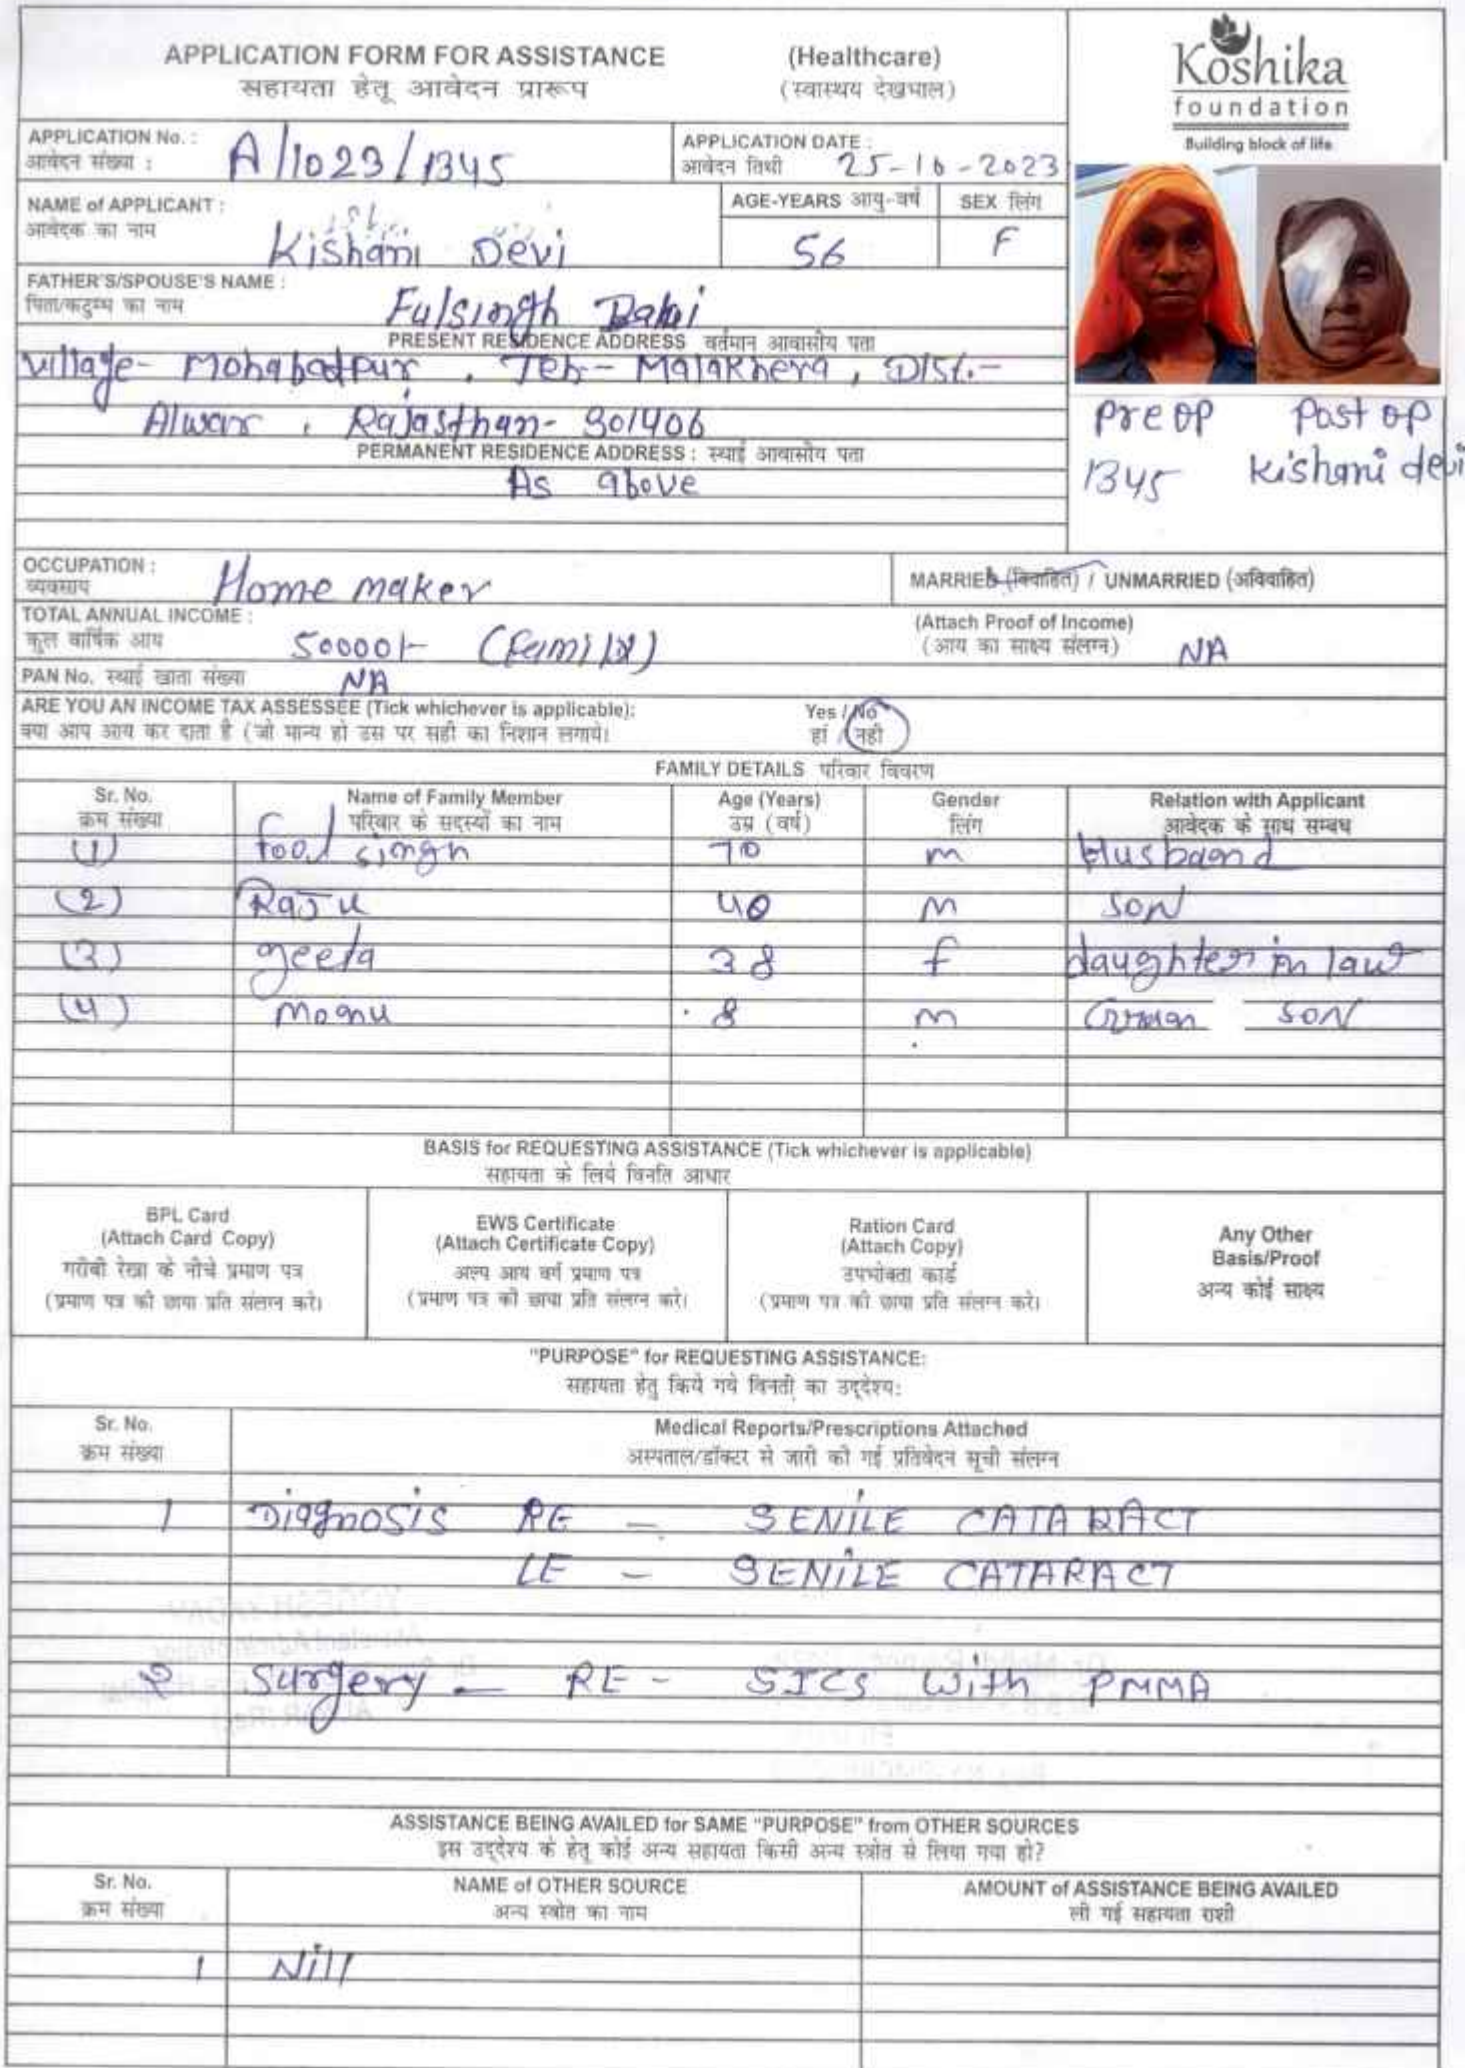 APPLICATION FORM FOR ASSISTANCE (Healthcare)
सहायता हेतू आवेदन प्रारूप (स्वास्थय देखभाल)
Koshika
foundation
Building block of life
APPLICATION No. :
आवेदन संख्या :
A/1023/1345
APPLICATION DATE :
आवेदन तिथी
25-10-2023
NAME of APPLICANT :
आवेदक का नाम
Kishani Devi
AGE-YEARS आयु-वर्ष
56
SEX लिंग
F
FATHER'S/SPOUSE'S NAME :
पिता/कटुम्ब का नाम
Fulsingh
PRESENT RESIDENCE ADDRESS वर्तमान आवासीय पता
Village- Mohabatpur, Teh- Malakhera, Dist.-
Alwar, Rajasthan- 301406
PERMANENT RESIDENCE ADDRESS : स्थाई आवासीय पता
As above
Pre op Post op
1345 Kishani devi
OCCUPATION :
व्यवसाय
Home maker
MARRIED (विवाहित) / UNMARRIED (अविवाहित)
TOTAL ANNUAL INCOME :
कुल वार्षिक आय
50000/- (Family)
(Attach Proof of Income)
(आय का साक्ष्य संलग्न)
NA
PAN No. स्थाई खाता संख्या
NA
ARE YOU AN INCOME TAX ASSESSEE (Tick whichever is applicable):
क्या आप आय कर दाता है (जो मान्य हो उस पर सही का निशान लगाये।
Yes / No
हां / नही
FAMILY DETAILS परिवार विवरण
Sr. No. Name of Family Member Age (Years) Gender Relation with Applicant
क्रम संख्या परिवार के सदस्यों का नाम उम्र (वर्ष) लिंग आवेदक के साथ सम्बध
(1) fool singh 70 m Husband
(2) Raju 40 m SON
(3) geeta 38 f daughter in law
(4) monu 8 m SON
BASIS for REQUESTING ASSISTANCE (Tick whichever is applicable)
सहायता के लिये विनति आधार
BPL Card
(Attach Card Copy)
गरीबी रेखा के नीचे प्रमाण पत्र
(प्रमाण पत्र की छाया प्रति संलग्न करे।
EWS Certificate
(Attach Certificate Copy)
अल्प आय वर्ग प्रमाण पत्र
(प्रमाण पत्र की छाया प्रति संलग्न करे।
Ration Card
(Attach Copy)
उपभोक्ता कार्ड
(प्रमाण पत्र की छाया प्रति संलग्न करे।
Any Other
Basis/Proof
अन्य कोई साक्ष्य
"PURPOSE" for REQUESTING ASSISTANCE:
सहायता हेतु किये गये विनती का उद्देश्य:
Sr. No. Medical Reports/Prescriptions Attached
क्रम संख्या अस्पताल/डॉक्टर से जारी की गई प्रतिवेदन सूची संलग्न
1 Diagnosis RE - SENILE CATARACT
LE - SENILE CATARACT
2 Surgery - RE - SICS with PMMA
ASSISTANCE BEING AVAILED for SAME "PURPOSE" from OTHER SOURCES
इस उद्देश्य के हेतू कोई अन्य सहायता किसी अन्य स्त्रोत से लिया गया हो?
Sr. No. NAME of OTHER SOURCE AMOUNT of ASSISTANCE BEING AVAILED
क्रम संख्या अन्य स्त्रोत का नाम ली गई सहायता राशी
1 Nill